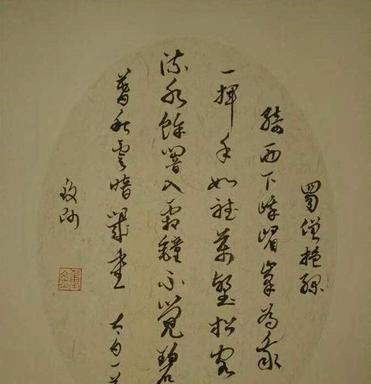 蜀僧抱綠
綺西下峨嵋峯為我
一揮手如聽萬壑松客
流水餘響入霜鐘不覺碧
暮秋雲暗幾重 太白一